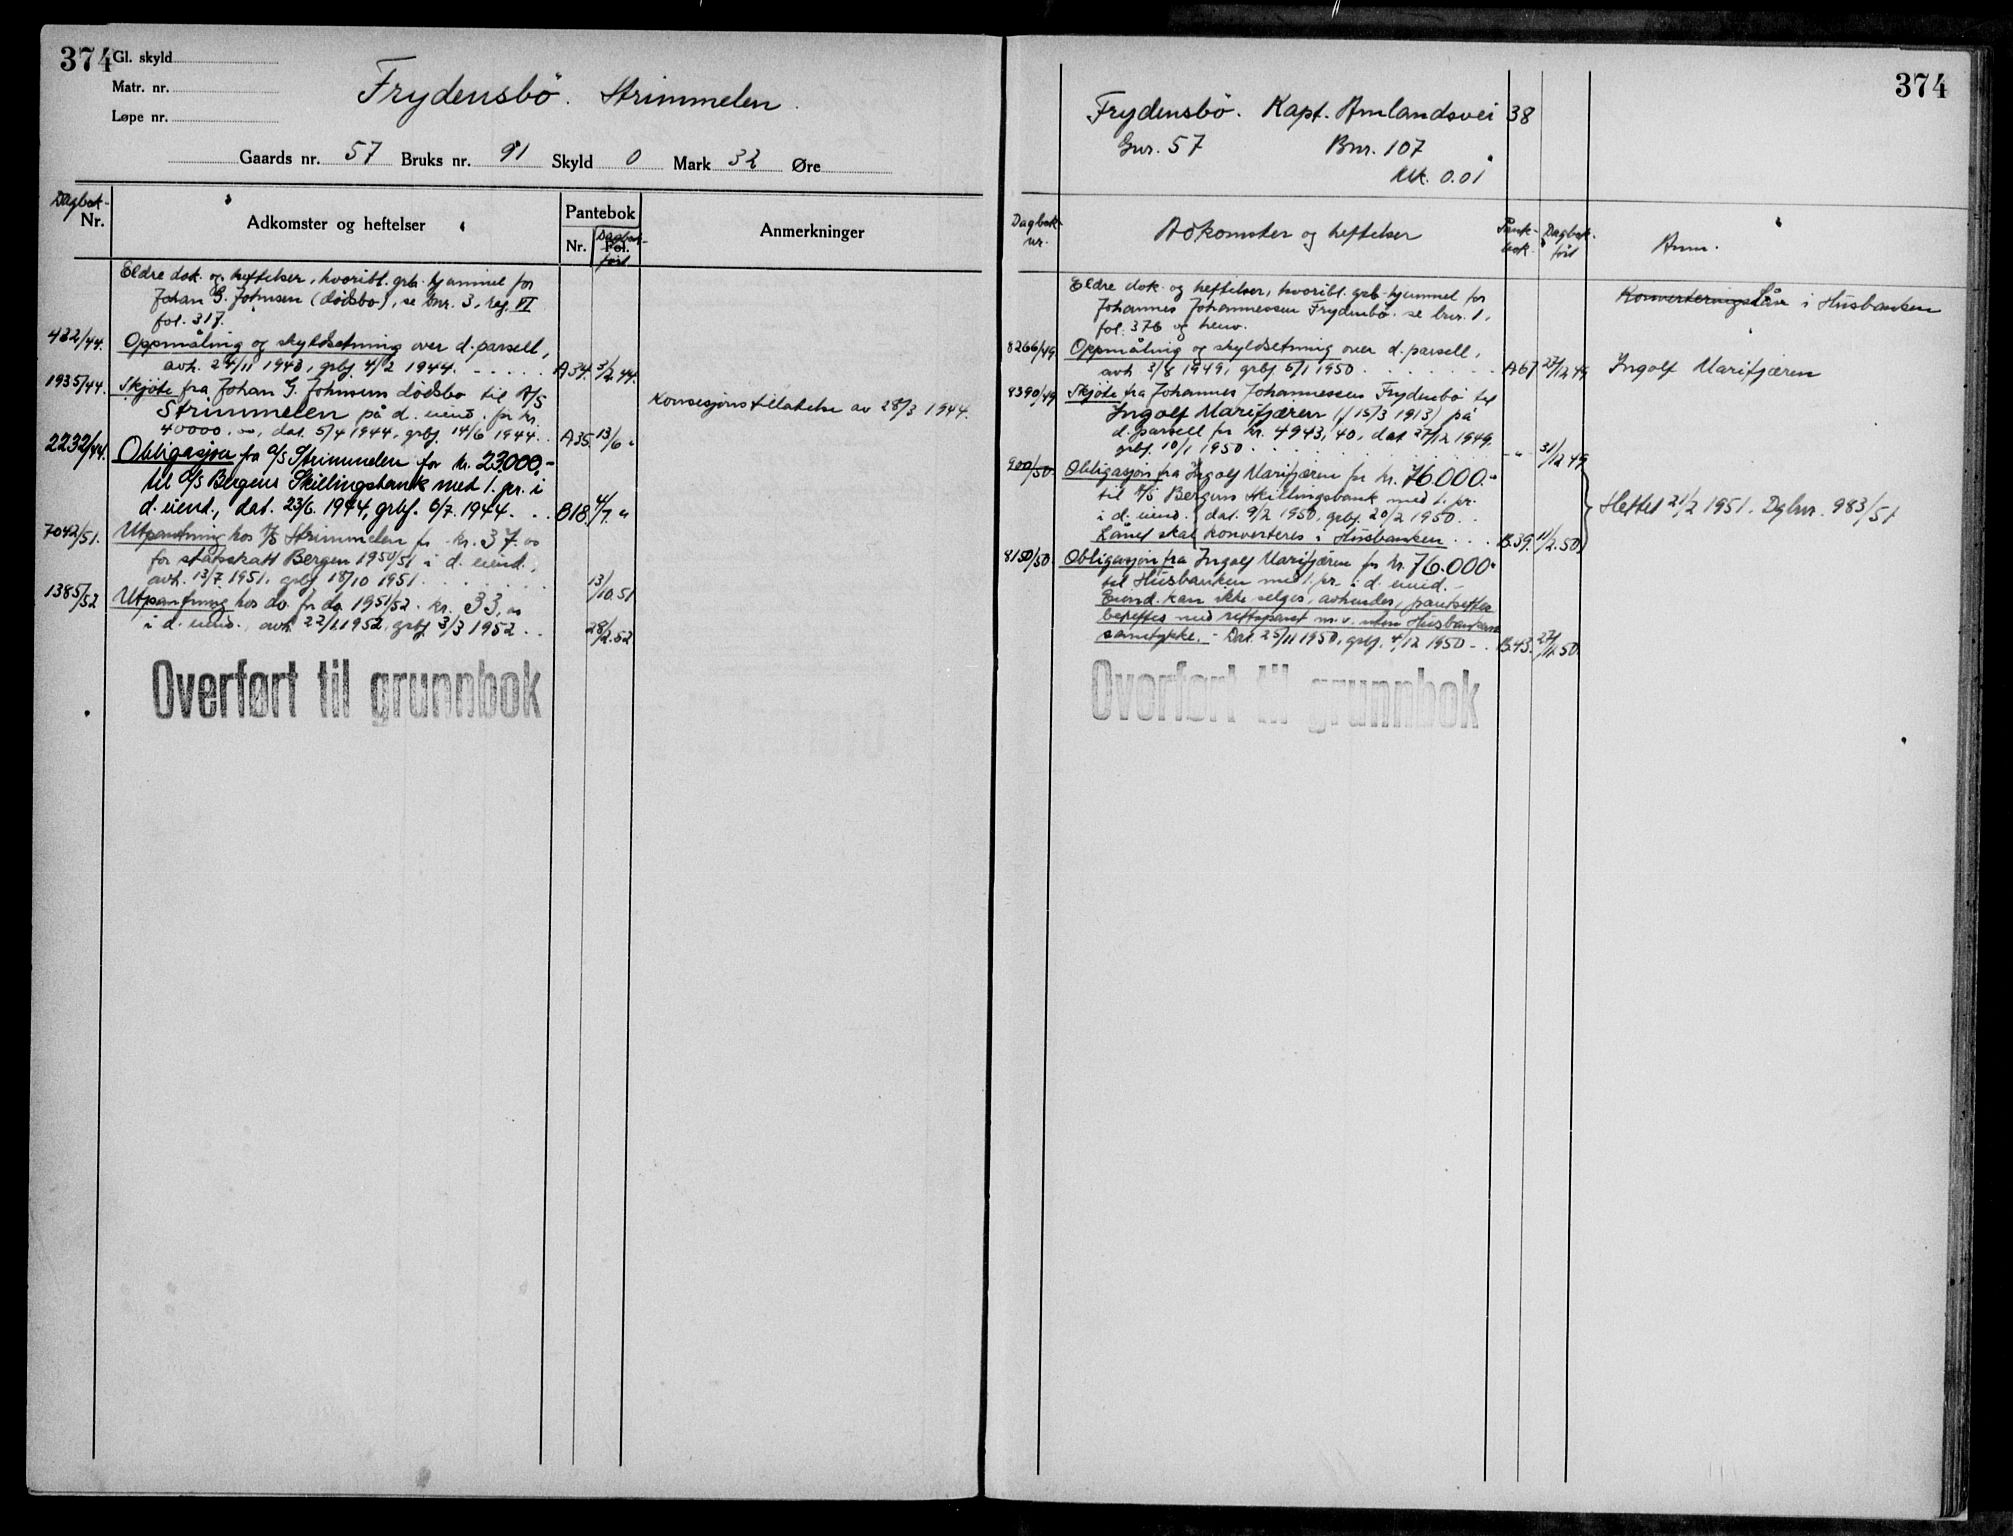 374
Gl. skyld
Matr. nr.
Løpe nr.
Frydensbö. Strimmelen.
Gaards nr. 57 Bruks nr. 91 Skyld 0 Mark 32 Øre
Dagbok-
Nr.
Adkomster og heftelser
Pantebok
Nr. Fol.
Dagbok-
ført
Anmerkninger
Eldre dok. og heftelser, hvoribl. grb. hjemmel for
Johan G. Johnsen (dødsbo), se bnr. 3, reg. VI
fol. 317.
432/44. Oppmåling og skyldsetning over d. parsell,
avh. 24/11 1943, grbf. 4/2 1944. - - - - - A34. 3/2 44.
1935/44. Skjöte fra Johan G. Johnsens dödsbo til A/S
Strimmelen på d. eiend. for kr.
40000.00, dat. 5/4 1944, grbf. 14/6 1944. . A35. 13/6 "
Konsesjonstillatelse av 28/3 1944.
2232/44. Obligasjon fra A/S Strimmelen for kr. 23.000.-
til A/S Bergens Skillingsbank med 1. pr. i
d. eiend., dat. 23/6. 1944, grbf. 6/7. 1944. . . B18. 4/7. "
7042/51. Utpantning hos A/S Strimmelen for kr. 37.00
for statsskatt Bergen 1950/51 i d. eiend.,
avh. 13/7 1951, grbf 18/10 1951 . . . . . . 13/10.51
1385/52 Utpantning hos do. for do 1951/52. kr. 33.00
i d. eiend., avh. 22/1 1952, grbf 3/3 1952 . . 28/2.52
Overført til grunnbok
374
Frydensbö. Kapt. Amlandsvei 38
Gnr. 57 Bnr. 107
Mk. 0.01
Dagbok-
nr.
Adkomster og heftelser
Pante-
bok.
Dagbok-
ført
Anm.
Eldre dok. og heftelser, hvoribl. grb. hjemmel for
Johannes Johannessen Frydenbö. se bnr. 1,
fol. 376 og henv.
Konverteringslån Lån i Husbanken
8266/49 Oppmåling og skyldsetning over d. parsell,
avh 3/8 1949, grbf 5/1 1950 . . . . . . . A67 27/12 49
Ingolf Marifjæren
8390/49 Skjöte fra Johannes Johannessen Frydenbö til
Ingolf Marifjæren (f 15/3 1913) på
d. parsell for kr. 4943,40, dat 27/12 1949.
grbf. 10/1 1950 . . . . . . . . . . - " - 31/12 49
900/50. Obligasjon fra Ingolf Marifjæren for kr. 76.000.-
til A/S Bergens Skillingsbank med 1. pr.
i d. eiend. dat. 9/2 1950, grbf. 20/2 1950 . .
Lånet skal konverteres i Husbanken . . . B.39. 11/2.50
Slettet 21/2 1951. Dgbnr. 983/51
8150/50. Obligasjon fra Ingolf Marifjæren for kr. 76.000.-
til Husbanken med 1. pr. i d. eiend. -
Eiend. kan ikke selges, avhendes, pantsettes
beheftes med rettspant m. v. uten Husbankens
samtykke. - Dat. 25/11 1950, grbf. 4/12 1950 - . B.43. 27/11.50.
Overført til grunnbok